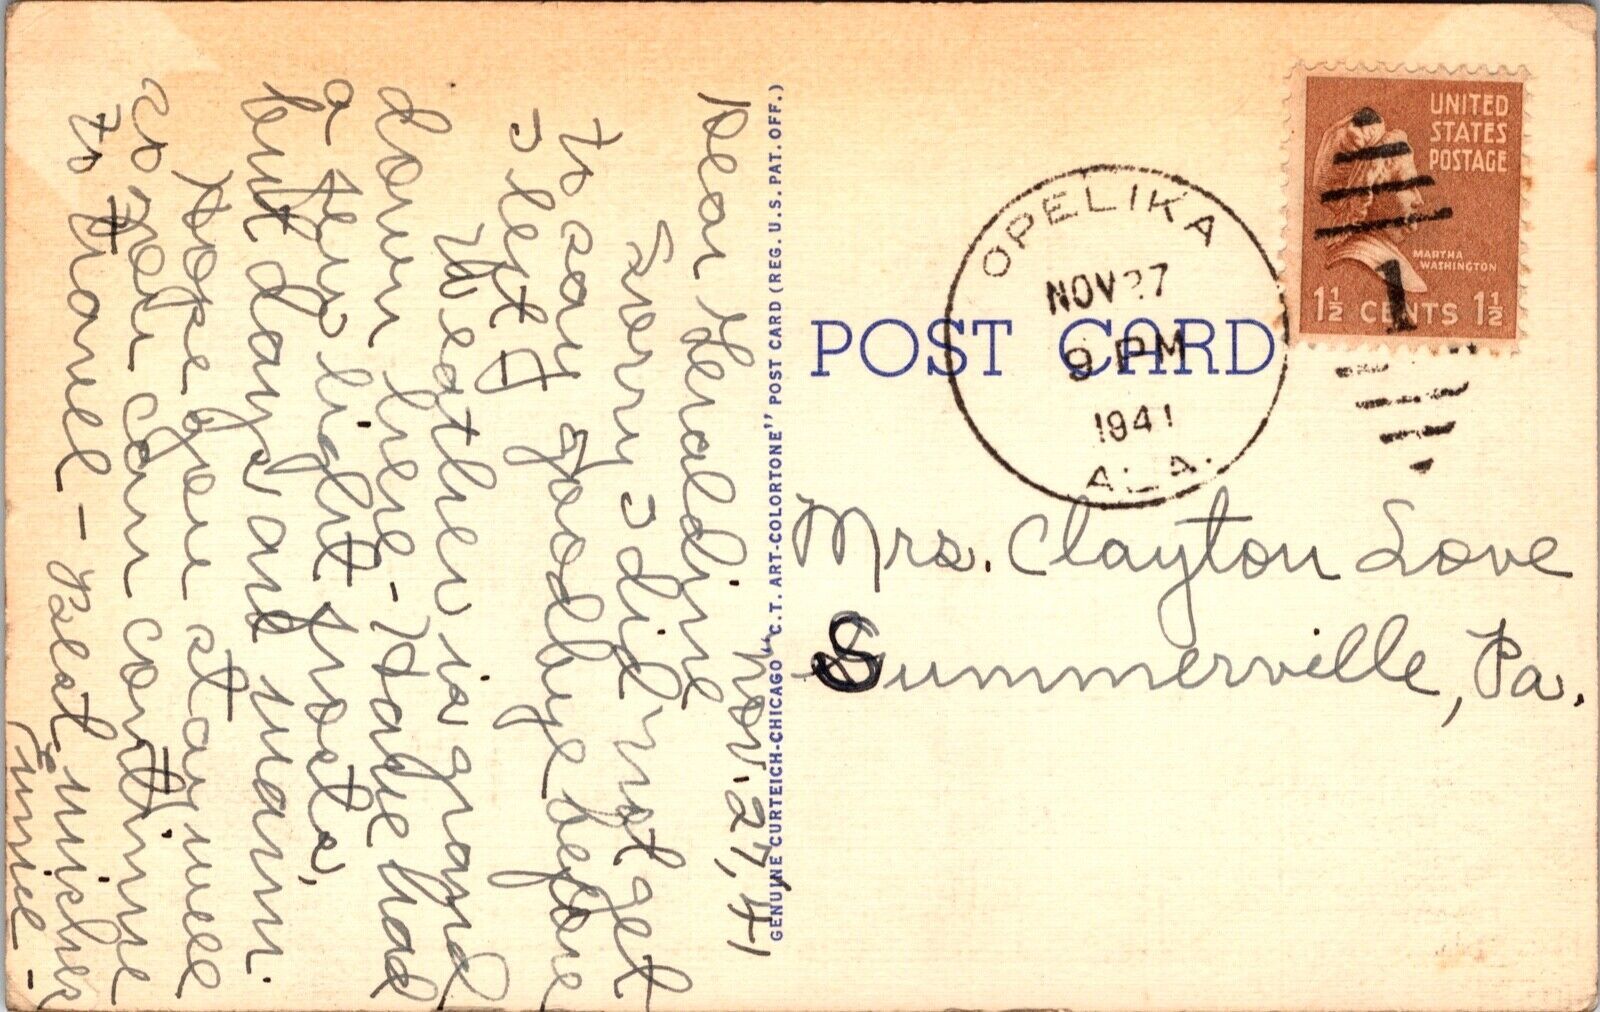 Nov. 27, 41
Dear Geraldine
Sorry I did not get
to say goodbye before
I left.
Weather is grand
down here - Have had
a few light frosts,
but days are warm.
Hope you stay well
so you can continue
to travel - Best wishes
Eunice -
GENUINE CURTEICH-CHICAGO "C.T. ART-COLORTONE" POST CARD (REG. U.S. PAT. OFF.)
POST CARD
OPELIKA
NOV 27
9 PM
1941
ALA.
UNITED
STATES
POSTAGE
MARTHA
WASHINGTON
1½ CENTS 1½
1
Mrs. Clayton Love
Summerville, Pa.